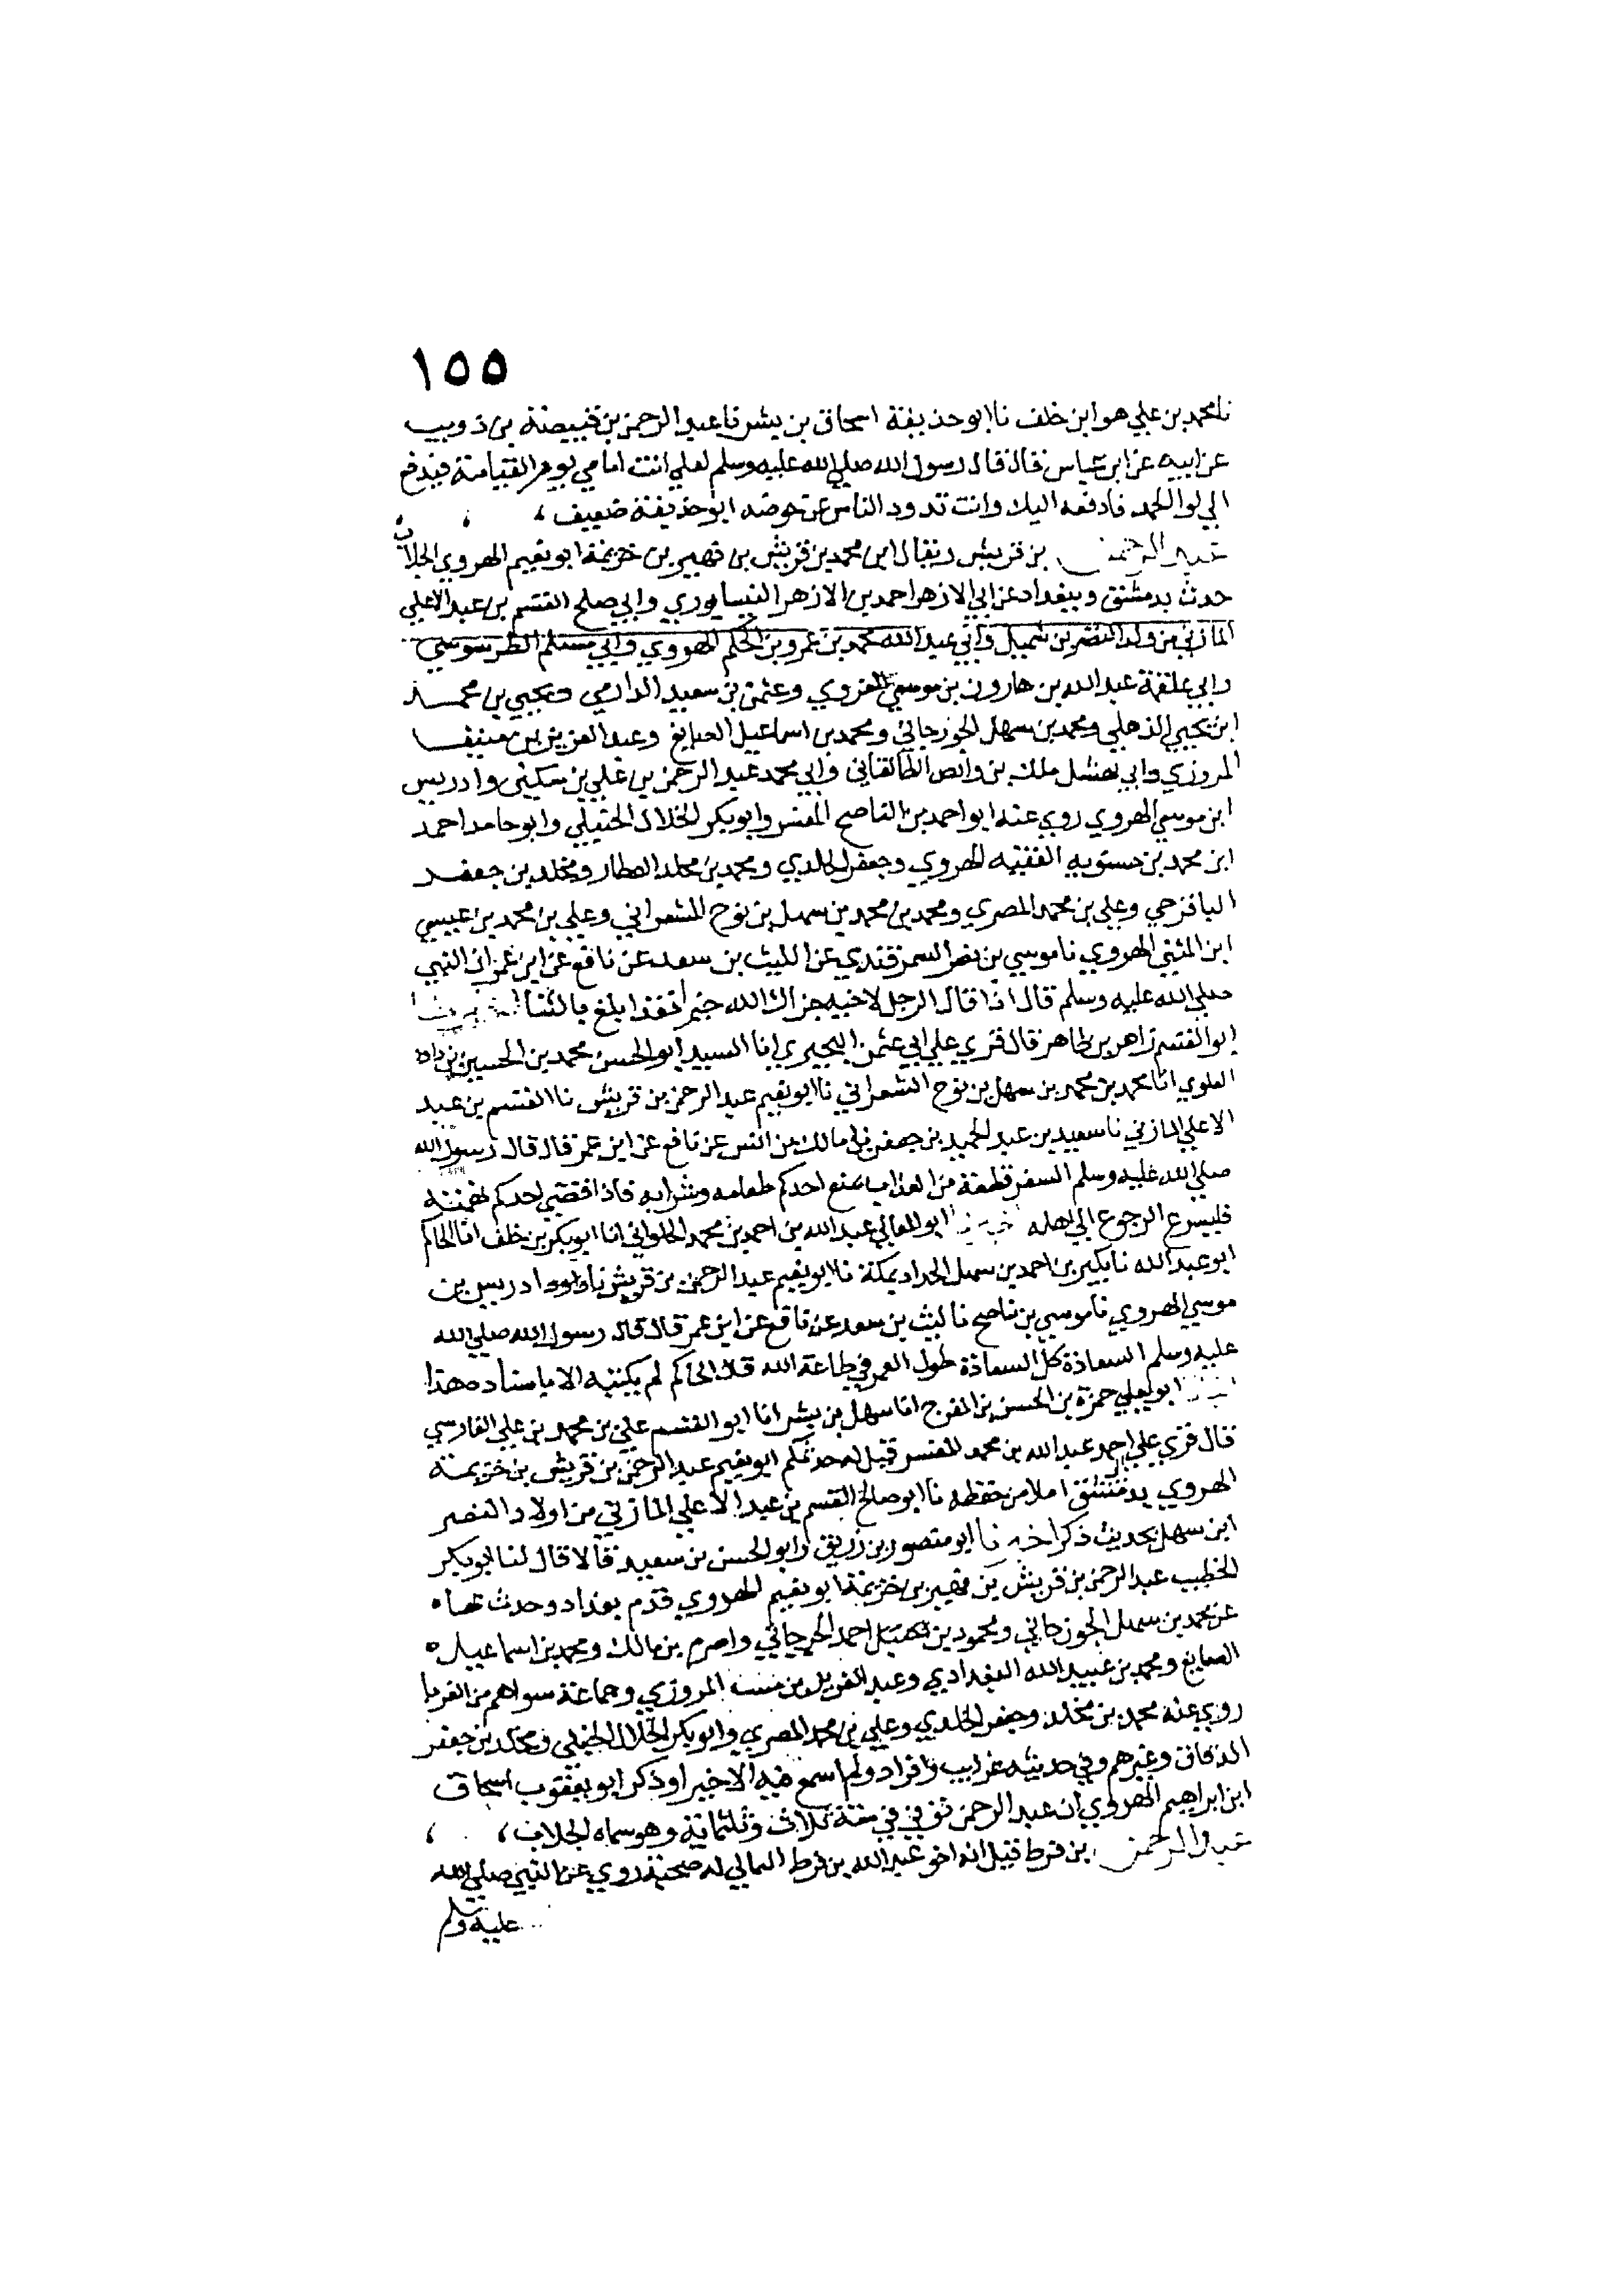 ١٥٥
نا محمد بن علي هو ابن خلف نا ابو حذيفة اسحاق بن بشر نا عبد الرحمن بن قبيصة بن ذويب
عن ابيه عن ابن عباس قال قال رسول الله صلى الله عليه وسلم لعلي انت امامي يوم القيامة فيدفع
الي لوا الحمد فادفعه اليك وانت تذود الناس عن حوضه ابو حذيفة ضعيف
عبد الرحمن بن قريش ويقال ابن محمد بن قريش بن فهير بن خزيمة ابو نعيم الهروي الجلاب
حدث بدمشق وببغداد عن ابي الازهر احمد بن الازهر النيسابوري وابي صلح القسم بن عبد الاعلي
المازني من ولد النضر بن شميل وابي عبد الله محمد بن عمرو بن الحكم الهروي وابي مسلم الطرسوسي
وابي علقمة عبد الله بن هارون بن موسي الفروي وعثمن بن سعيد الدارمي ويحيي بن محمد
ابن يحيي الذهلي ومحمد بن سهل الجوزجاني ومحمد بن اسماعيل الصايغ وعبد العزيز بن منيب
المروزي وابي نهشل ملك بن وابص الطالقاني وابي محمد عبد الرحمن بن علي بن سكين وادريس
ابن موسي الهروي روي عنه ابو احمد بن الناصح المفسر وابو بكر الخلال الحنبلي وابو حامد احمد
ابن محمد بن حسنويه الفقيه الهروي وجعفر الخالدي ومحمد بن مخلد العطار ومخلد بن جعفر
الباقرحي وعلي بن محمد المصري ومحمد بن محمد بن سهل بن نوح الشعراني وعلي بن محمد بن عيسي
ابن المثني الهروي نا موسي بن نصر السمرقندي عن الليث بن سعد عن نافع عن ابن عمر ان النبي
صلي الله عليه وسلم قال اذا قال الرجل لاخيه جزاك الله خيرا فقد ابلغ بالثنا اخبرنا
ابو القسم زاهر بن طاهر قال قري علي ابي عثمن البحيري انا السيد ابو الحسن محمد بن الحسين بن داود
العلوي انا محمد بن محمد بن سهل بن نوح الشعراني نا ابو نعيم عبد الرحمن بن قريش نا القسم بن عبد
الاعلي المازني نا سعيد بن عبد الحميد بن جعفر نا مالك بن انس عن نافع عن ابن عمر قال قال رسول الله
صلي الله عليه وسلم السفر قطعة من العذاب يمنع احدكم طعامه وشرابه فاذا قضي احدكم نهمته
فليسرع الرجوع الي اهله اخبرنا ابو المعالي عبد الله بن احمد بن محمد الحلواني انا ابو بكر بن خلف انا الحاكم
ابو عبد الله نا بكير بن احمد بن سهل الحداد بمكة نا ابو نعيم عبد الرحمن بن قريش نا داود ادريس بن
موسي الهروي نا موسي بن ناصح نا ليث بن سعد عن نافع عن ابن عمر قال قال رسول الله صلي الله
عليه وسلم السعادة كل السعادة طول العمر في طاعة الله قال الحاكم لم يكتبه الا باسناده هذا
اخبرنا ابو يعلي حمزة بن الحسن بن المفرج انا سهل بن بشر انا ابو القسم علي بن محمد بن علي الفارسي
قال قري علي احمد عبد الله بن محمد المفسر قيل له حدثكم ابو نعيم عبد الرحمن بن قريش بن خزيمة
الهروي بدمشق املا من حفظه نا ابو صالح القسم بن عبد الاعلي المازني من اولاد النضر
ابن سهل بحديث ذكر اخبرنا ابو منصور بن زريق وابو الحسن بن سعيد قالا قال لنا ابو بكر
الخطيب عبد الرحمن بن قريش بن فهير بن خزيمة ابو نعيم الهروي قدم بغداد وحدث بها
عن محمد بن سهل الجوزجاني ومحمود بن احمد الجرجاني واصرم بن مالك ومحمد بن اسماعيل
الصايغ ومحمد بن عبيد الله البغدادي وعبد العزيز بن منيب المروزي وجماعة سواهم من الغربا
روي عنه محمد بن مخلد وجعفر الخلدي وعلي بن محمد المصري وابو بكر الخلال الحنبلي ومخلد بن جعفر
الدقاق وغيرهم وفي حديثه غرايب وافراد ولم اسمع فيه الا خيرا وذكر ابو يعقوب اسحاق
ابن ابراهيم الهروي ان عبد الرحمن توفي في سنة ثلاث وثلثماية وهو سماه الجلاب
عبد الرحمن بن قرط قيل انه اخو عبد الله بن قرط الثمالي له صحبة روي عن النبي صلي الله
عليه وسلم